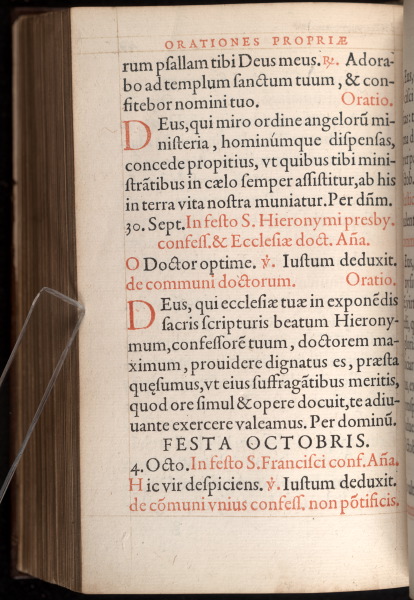 ORATIONES PROPRIÆ
rum pſallam tibi Deus meus. ℞. Adora-
bo ad templum ſanctum tuum, & con-
fitebor nomini tuo. Oratio.
DEus, qui miro ordine angelorũ mi-
niſteria, hominúmque diſpenſas,
concede propitius, vt quibus tibi mini-
ſtrãtibus in cælo ſemper aſſiſtitur, ab his
in terra vita noſtra muniatur. Per dñm.
30. Sept. In feſto S. Hieronymi presby.
confeſſ. & Eccleſiæ doct. Aña.
O Doctor optime. ℣. Iustum deduxit.
de communi doctorum. Oratio.
DEus, qui eccleſiæ tuæ in exponẽdis
ſacris ſcripturis beatum Hierony-
mum, confeſſorẽ tuum, doctorem ma-
ximum, prouidere dignatus es, præſta
quęſumus, vt eius ſuffragãtibus meritis,
quod ore ſimul & opere docuit, te adiu-
uante exercere valeamus. Per dominũ.
FESTA OCTOBRIS.
4. Octo. In feſto S. Franciſci conf. Aña.
Hic vir deſpiciens. ℣. Iustum deduxit.
de cõmuni vnius confeſſ. non põtificis.